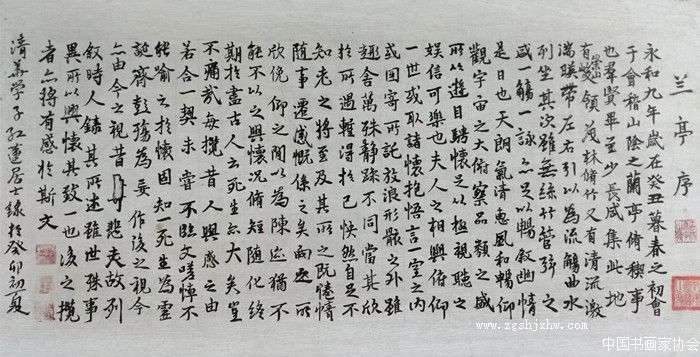 兰亭序
永和九年歲在癸丑暮春之初會
于會稽山陰之蘭亭脩稧事
也群賢畢至少長咸集此地
有崇山峻領茂林脩竹又有清流激
湍暎帶左右引以為流觴曲水
列坐其次雖無絲竹管弦之
盛一觴一詠亦足以暢敘幽情
是日也天朗氣清惠風和暢仰
觀宇宙之大俯察品類之盛
所以遊目騁懷足以極視聽之
娛信可樂也夫人之相與俯仰
一世或取諸懷抱悟言一室之內
或因寄所託放浪形骸之外雖
趣舍萬殊靜躁不同當其欣
於所遇蹔得於己怏然自足不
知老之將至及其所之既惓情
隨事遷感慨係之矣向之所
欣俛仰之間以為陳迹猶不
能不以之興懷況脩短隨化終
期於盡古人云死生亦大矣豈
不痛哉每攬昔人興感之由
若合一契未嘗不臨文嗟悼不
能喻之於懷固知一死生為虛
誕齊彭殤為妄作後之視今
亦由今之視昔悲夫故列
敘時人錄其所述雖世殊事
異所以興懷其致一也後之攬
者亦將有感於斯文
清華學子紅蓮居士錄於癸卯初夏
www.zgshjxhw.com
中国书画家协会